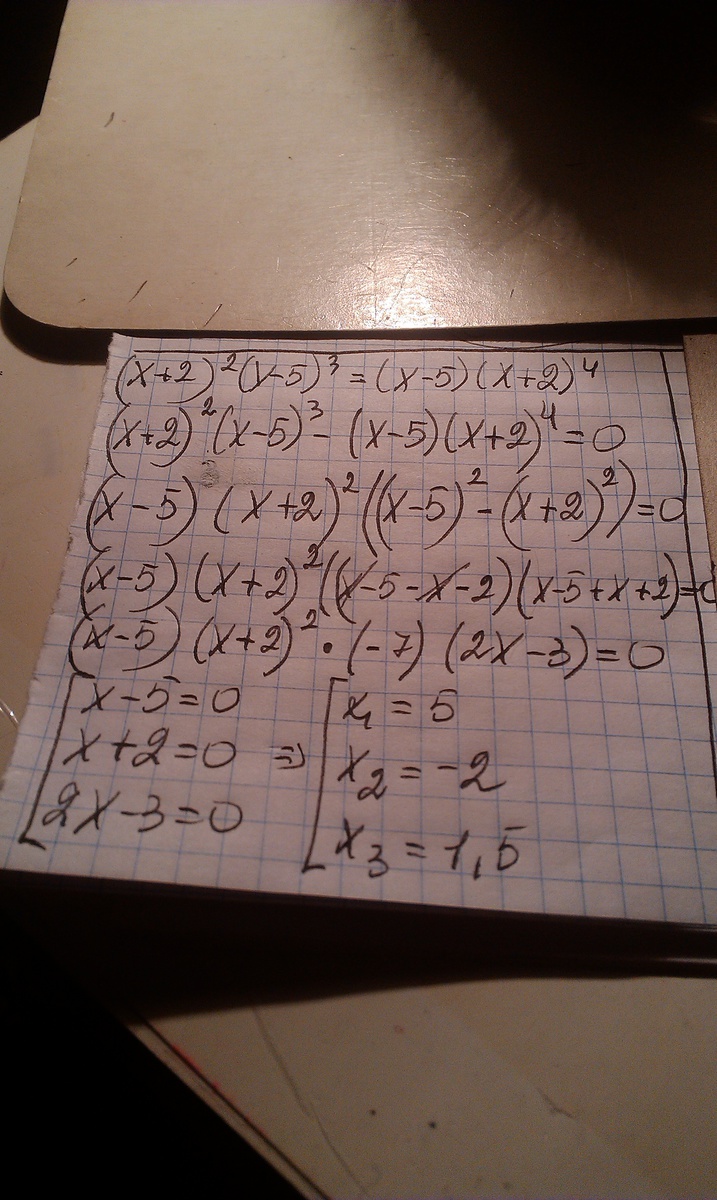 (x+2)²(x-5)³ = (x-5)(x+2)⁴
(x+2)²(x-5)³ - (x-5)(x+2)⁴ = 0
(x-5)(x+2)²((x-5)² - (x+2)²) = 0
(x-5)(x+2)²((x-5-x-2)(x-5+x+2) = 0
(x-5)(x+2)² · (-7)(2x-3) = 0
[ x-5 = 0 [ x₁ = 5
x+2 = 0 => x₂ = -2
2x-3 = 0 x₃ = 1,5